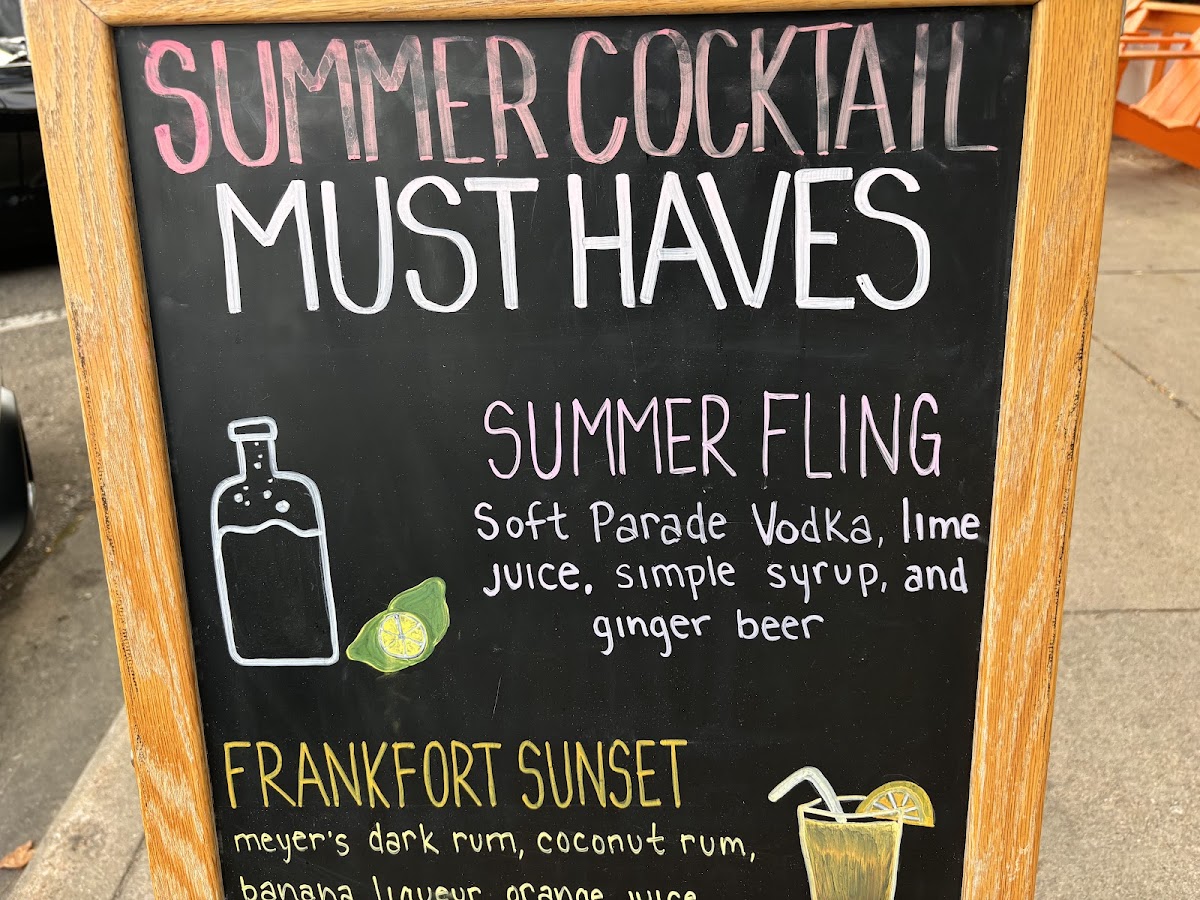 SUMMER COCKTAIL
MUST HAVES
SUMMER FLING
Soft Parade Vodka, lime
juice, simple syrup, and
ginger beer
FRANKFORT SUNSET
meyer's dark rum, coconut rum,
banana liqueur, orange juice